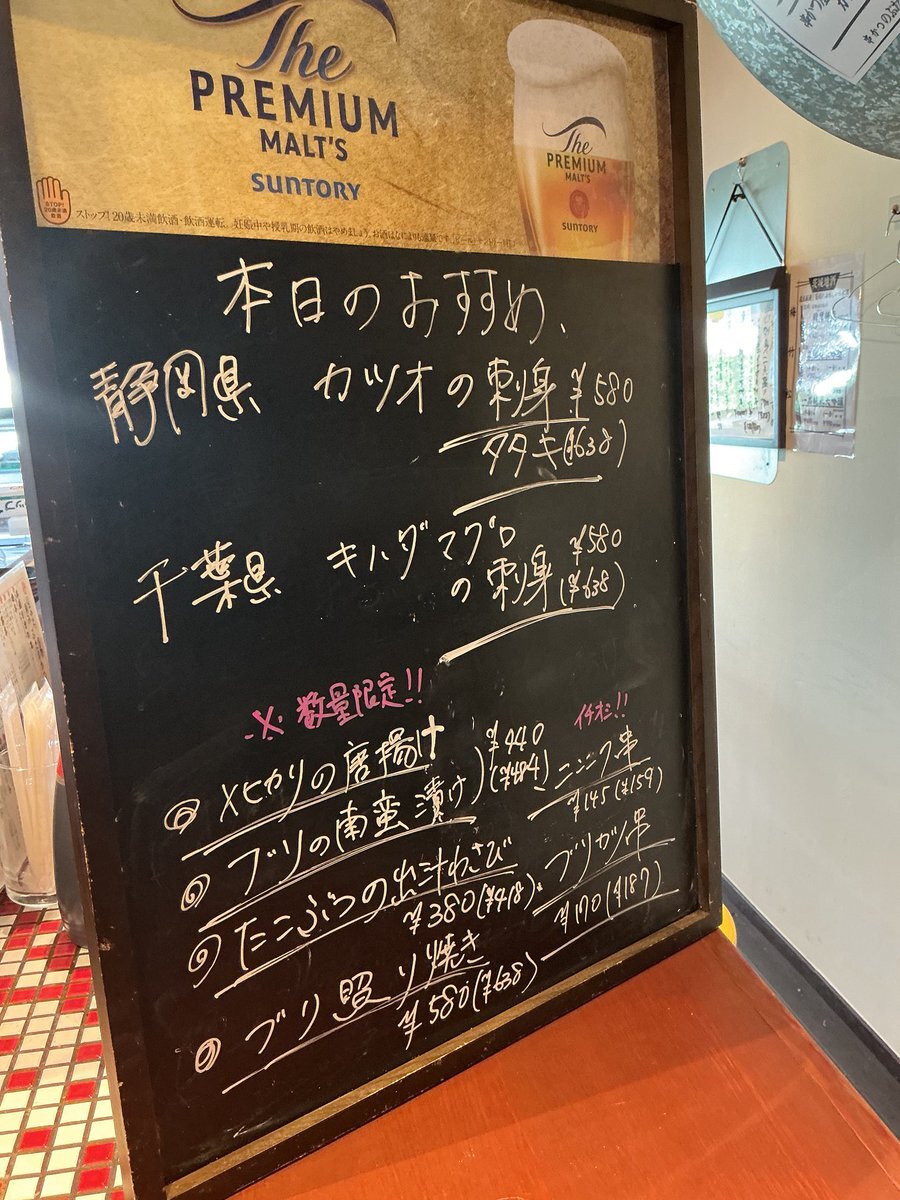 The
PREMIUM
MALT'S
SUNTORY
The
PREMIUM
MALT'S
SUNTORY
STOP!
ストップ!20歳未満飲酒・飲酒運転。妊娠中や授乳期の飲酒はやめましょう。お酒はなによりも適量です。
本日のおすすめ、
静岡県 カツオの刺身 ¥580
タタキ(¥638)
千葉県 キハダマグロ ¥580
の刺身 (¥638)
※数量限定!!
メヒカリの唐揚げ ¥440
ブリの南蛮漬け (¥484)
たこぶつの出汁わさび
¥380(¥418)
ブリ照り焼き
¥580(¥638)
イチオシ!!
ニンニク串
¥145(¥159)
ブリカツ串
¥170(¥187)